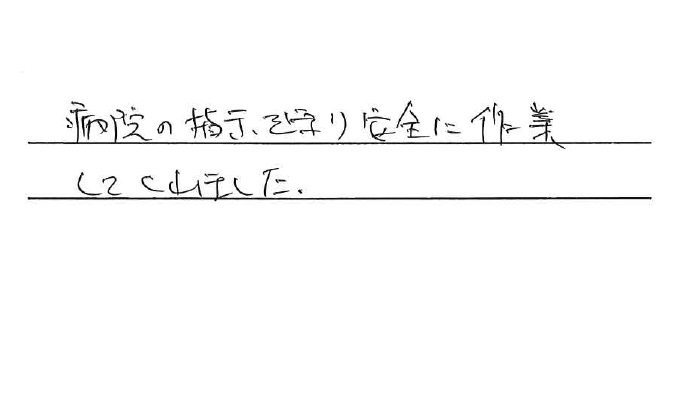 病院の指示を守り安全に作業
してくれました.